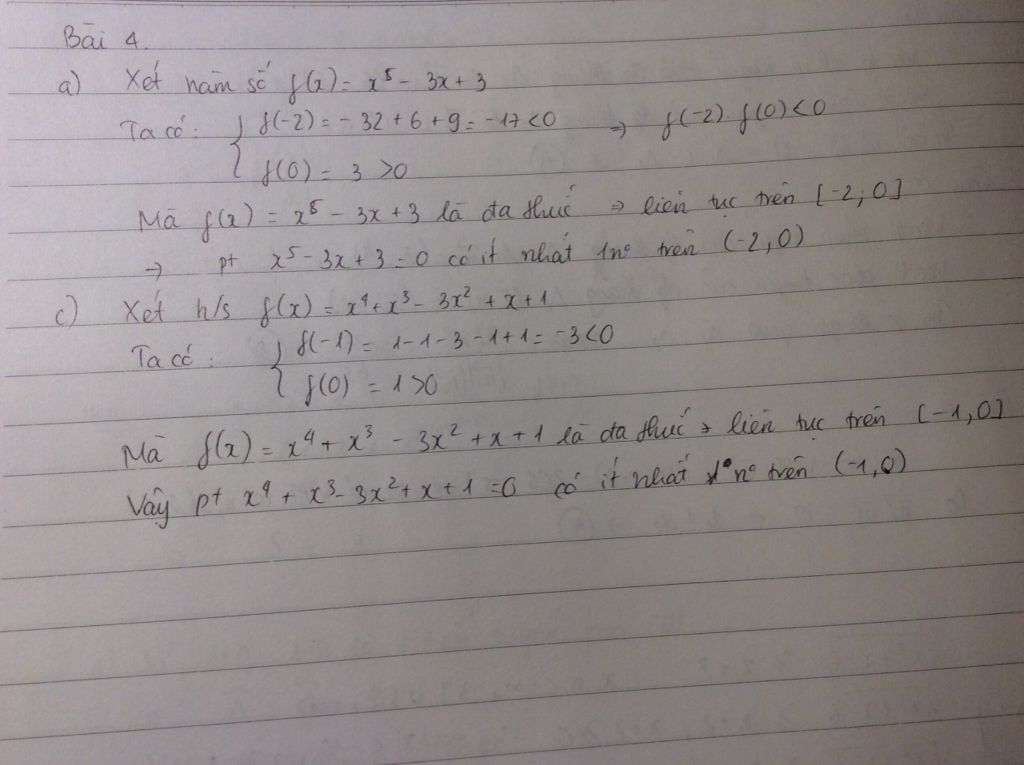 Bài 4.
a) Xét hàm số f(x) = x⁵ - 3x + 3
Ta có: { f(-2) = - 32 + 6 + 9 = -17 < 0 → f(-2) f(0) < 0
f(0) = 3 > 0
Mà f(x) = x⁵ - 3x + 3 là đa thức → liên tục trên [-2; 0]
→ pt x⁵ - 3x + 3 = 0 có ít nhất 1n° trên (-2, 0)
c) Xét h/s f(x) = x⁴ + x³ - 3x² + x + 1
Ta có: { f(-1) = 1 - 1 - 3 - 1 + 1 = -3 < 0
f(0) = 1 > 0
Mà f(x) = x⁴ + x³ - 3x² + x + 1 là đa thức → liên tục trên [-1, 0]
Vậy pt x⁴ + x³ - 3x² + x + 1 = 0 có ít nhất 1 n° trên (-1, 0)